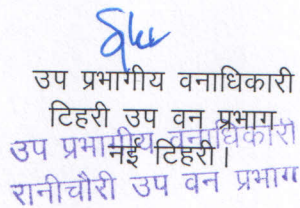 उप प्रभागीय वनाधिकारी
टिहरी उप वन प्रभाग
नई टिहरी।
उप प्रभागीय वनाधिकारी
रानीचौरी उप वन प्रभाग